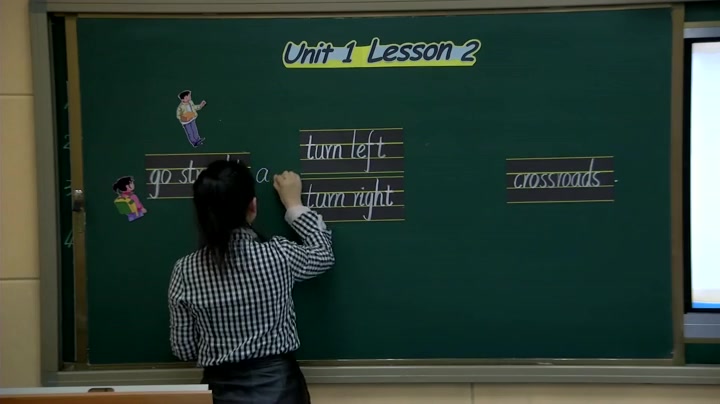 Unit 1 Lesson 2
turn left
go a
turn right
crossroads.